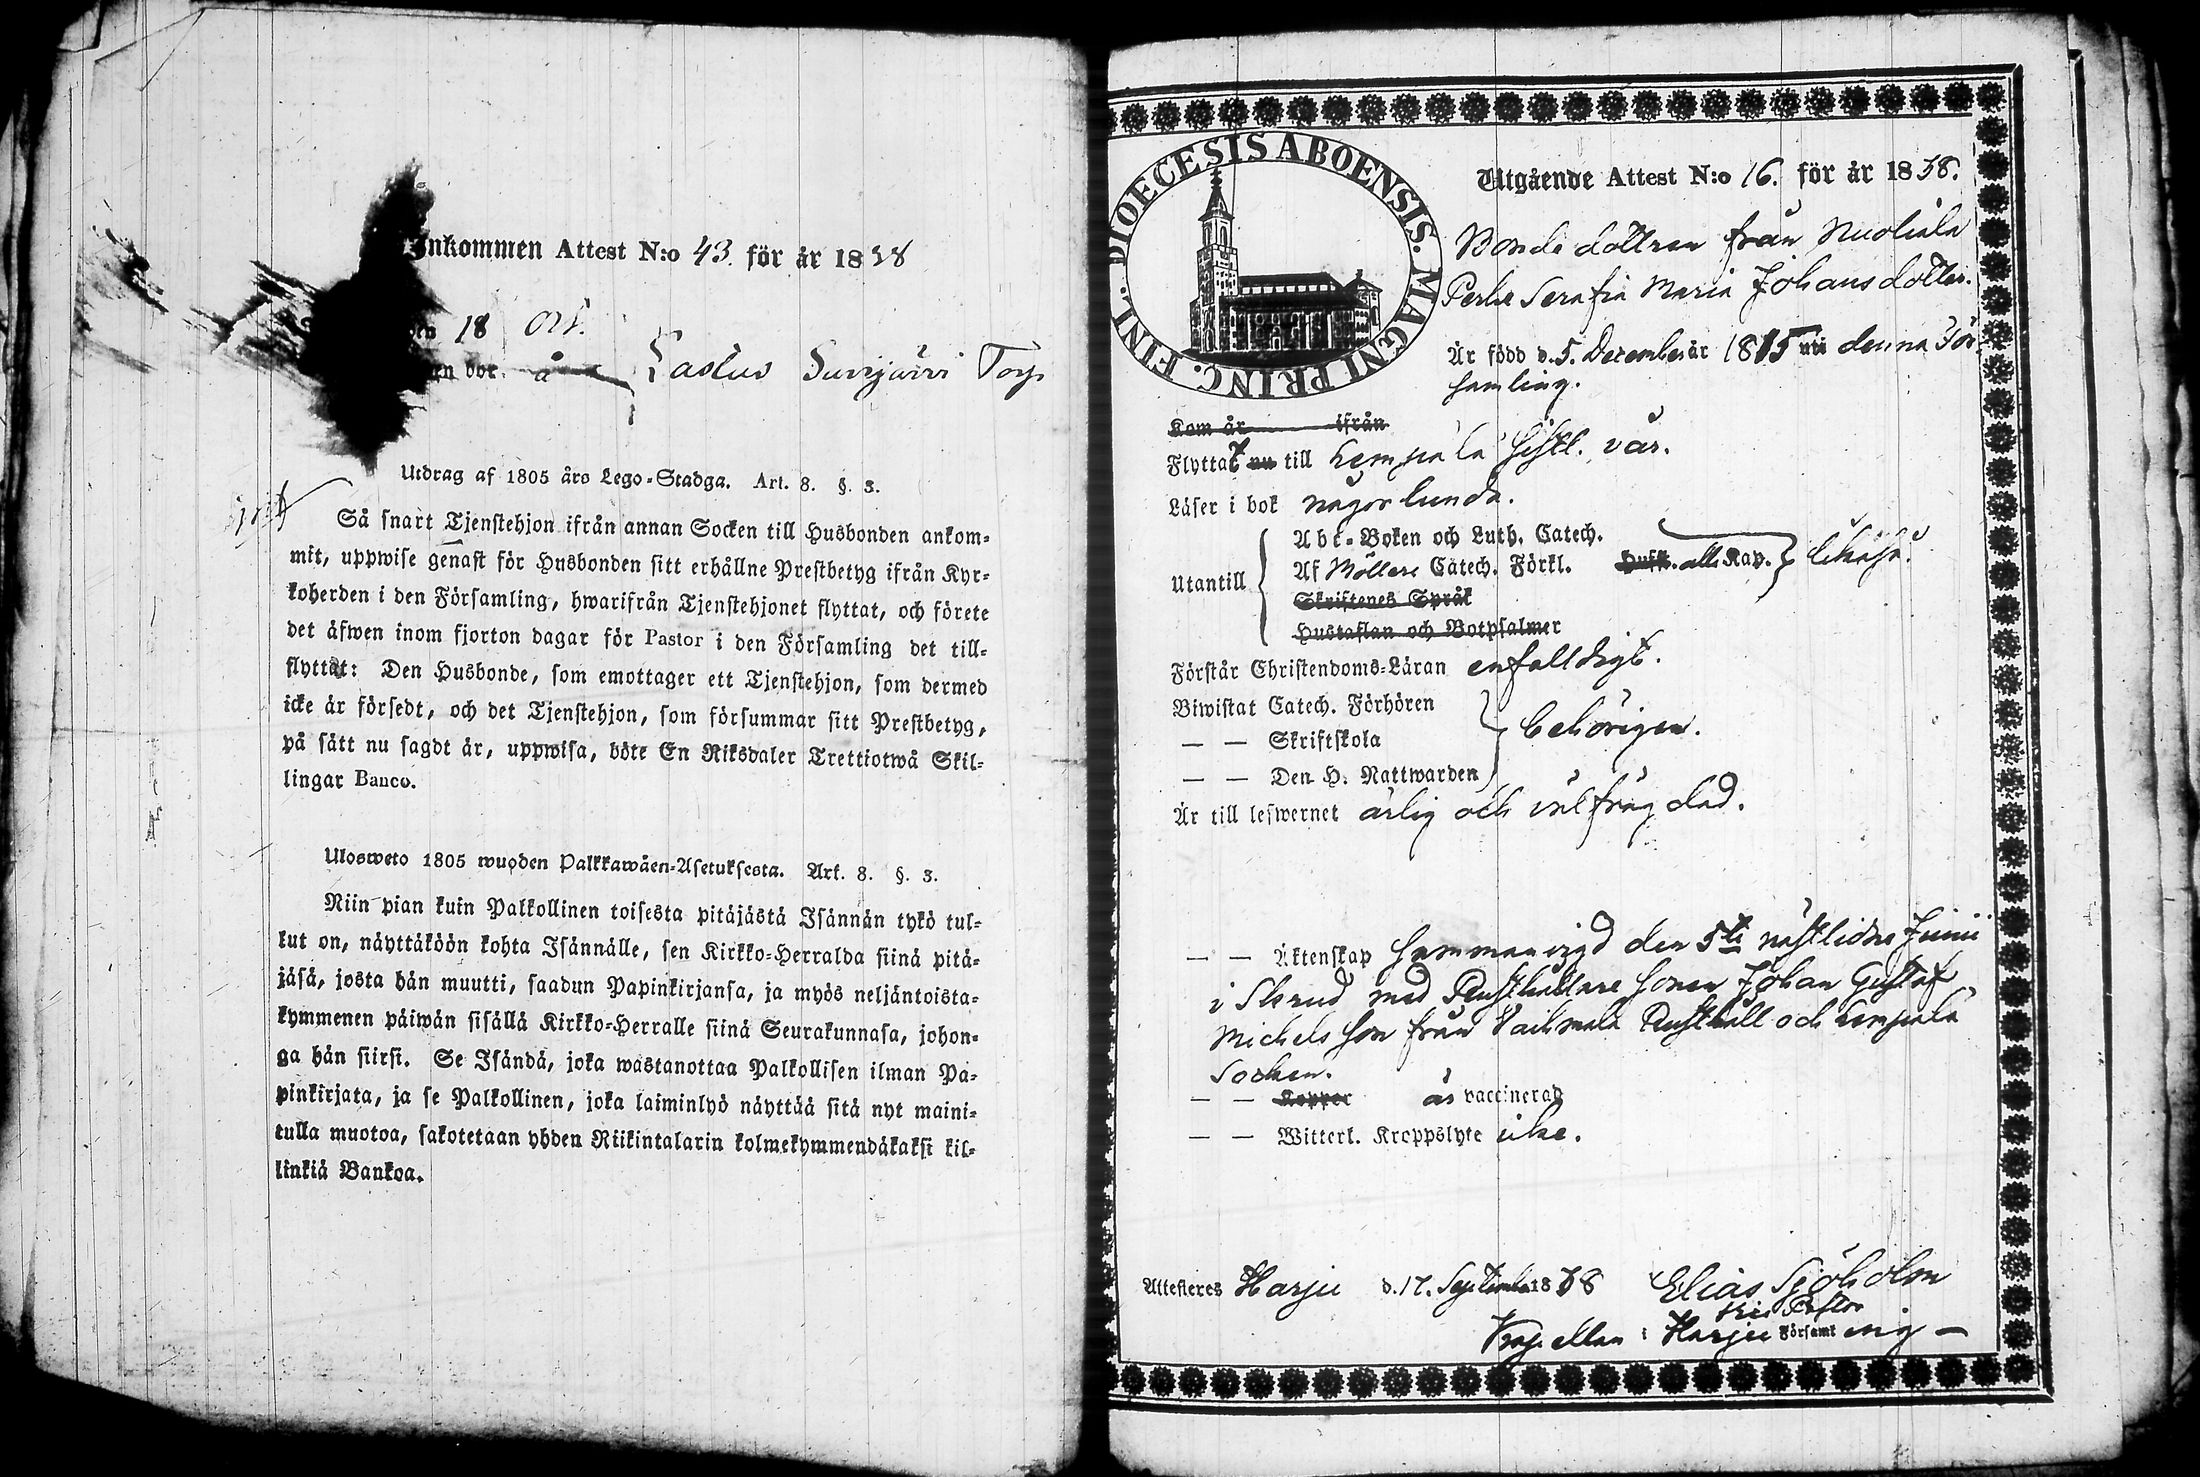 Inkommen Attest N:o 43. för år 1838
den 18 Oct.
en bor å Lastus Surrjärwi Torp
Utdrag af 1805 års Lego-Stadga. Art. 8. §. 3.
Så snart Tjenstehjon ifrån annan Socken till Husbonden ankom-
mit, uppwise genast för Husbonden sitt erhållne Prestbetyg ifrån Kyr-
koherden i den Församling, hwarifrån Tjenstehjonet flyttat, och förete
det äfwen inom fjorton dagar för Pastor i den Församling det till-
flyttat: Den Husbonde, som emottager ett Tjenstehjon, som dermed
icke är försedt, och det Tjenstehjon, som försummar sitt Prestbetyg,
på sätt nu sagdt är, uppwisa, böte En Riksdaler Trettiotwå Skil-
lingar Banco.
Ulosweto 1805 wuoden Palkkawäen-Asetuksesta. Art. 8. §. 3.
Niin pian kuin Palkollinen toisesta pitäjästä Isännän tykö tul-
kut on, näyttäköön kohta Isännälle, sen Kirkko-Herralda siinä pitä-
jäsä, josta hän muutti, saadun Papinkirjansa, ja myös neljäntoista-
kymmenen päiwän sisällä Kirkko-Herralle siinä Seurakunnasa, johon-
ga hän siirsi. Se Isändä, joka wastanottaa Palkollisen ilman Pa-
pinkirjata, ja se Palkollinen, joka laiminlyö näyttää sitä nyt maini-
tulla muotoa, sakotetaan yhden Riikintalarin kolmekymmendäkaksi kil-
linkiä Bankoa.
DIOECESIS ABOENSIS. MAGNI PRINC. FINL.
Utgående Attest N:o 16. för år 1838.
Bonde dottren från Nuoliala
Perhe Serafia Maria Johansdotter.
Är född d. 5. December år 1815 uti denna För
samling.
Kom år ifrån
Flyttat nu till Lempälä sistl. vår.
Läser i bok någorlunda.
Utantill
Abc-Boken och Luth. Catech.
Af Möllers Catech. Förkl. Hufst. alla Kap. likaså.
Skriftenes Språk
Hustaflan och Botpsalmer
Förstår Christendoms-Läran enfalldigt.
Biwistat Catech. Förhören
— — Skriftskola behörigen.
— — Den H. Nattwarden
Är till lefwernet ärlig och välfrägdad.
— — Äktenskap sammanvigd den 5te nästlidne Junii
i Skrud med Rusthållare sonen Johan Gustaf
Michelsson från Rusthåll och Lempälä
Socken.
— — Koppor är vaccinerad
— — Witterl. Kroppslyte icke.
Attesteras Harju d. 17. September 1838 Elias Sjöholm
Pastor
Kapellan i Harju Församl ing —